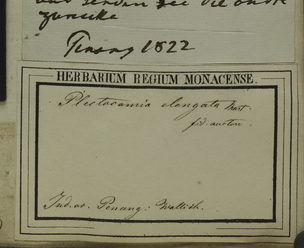 und senden Sie die andre
zurücke
Penang 1822
HERBARIUM REGIUM MONACENSE.
Plectocomia elongata Mart.
fid. autore.
Ind. or. Penang: Wallich.